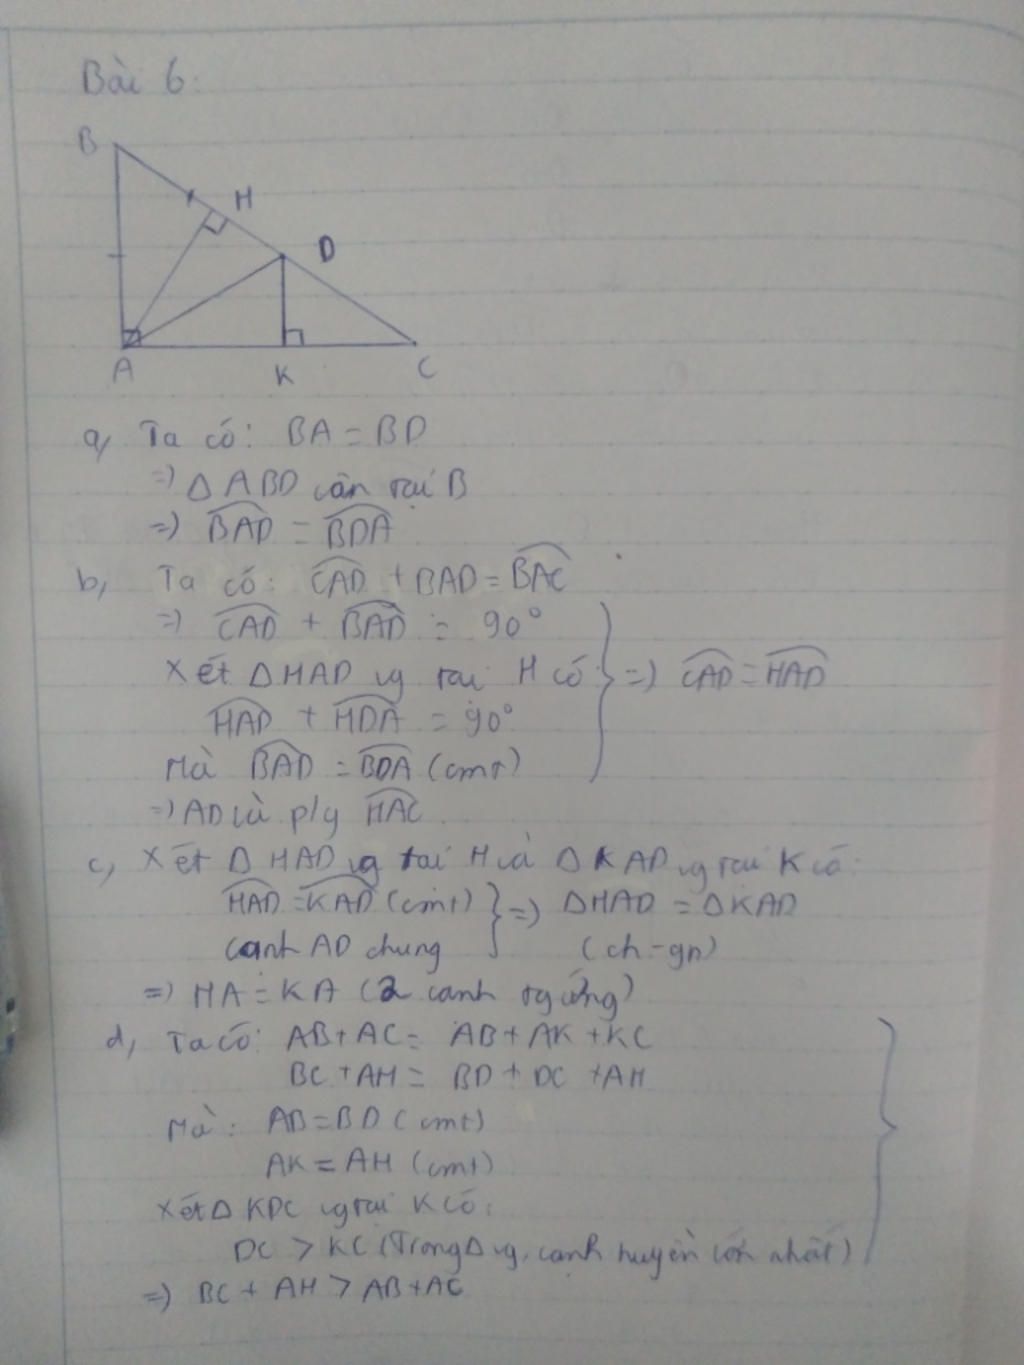 Bài 6:
B
H
D
A
K
C
a, Ta có: BA = BD
=> Δ ABD cân tại B
=> BAD = BDA
b, Ta có: CAD + BAD = BAC
=> CAD + BAD = 90°
Xét Δ HAD vg tại H có => CAD = HAD
HAD + HDA = 90°
Mà BAD = BDA (cmt)
=> AD là p/g HAC
c, Xét Δ HAD vg tại H và Δ KAD vg tại K có:
HAD = KAD (cmt) => ΔHAD = ΔKAD
cạnh AD chung (ch-gn)
=> HA = KA (2 cạnh tg ứng)
d, Ta có: AB + AC = AB + AK + KC
BC + AH = BD + DC + AH
Mà: AB = BD (cmt)
AK = AH (cmt)
Xét Δ KDC vg tại K có:
DC > KC (Trong Δ vg, cạnh huyền lớn nhất)
=> BC + AH > AB + AC